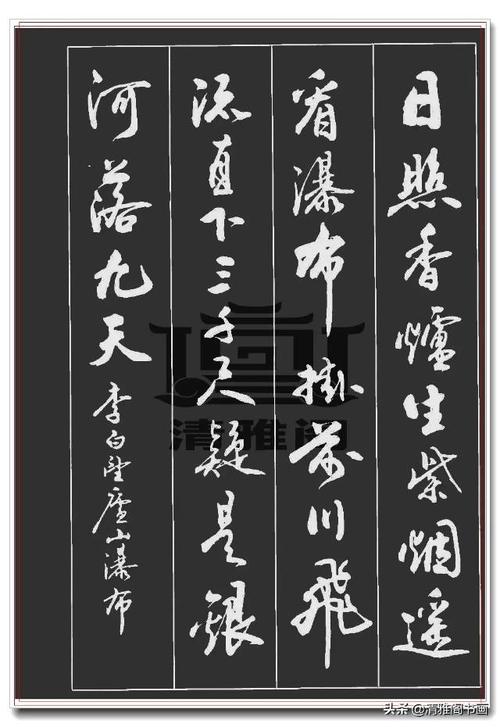 日照香爐生紫烟遥
看瀑布掛前川飛
流直下三千尺疑是銀
河落九天
李白望廬山瀑布
清雅阁
头条@清雅阁书画